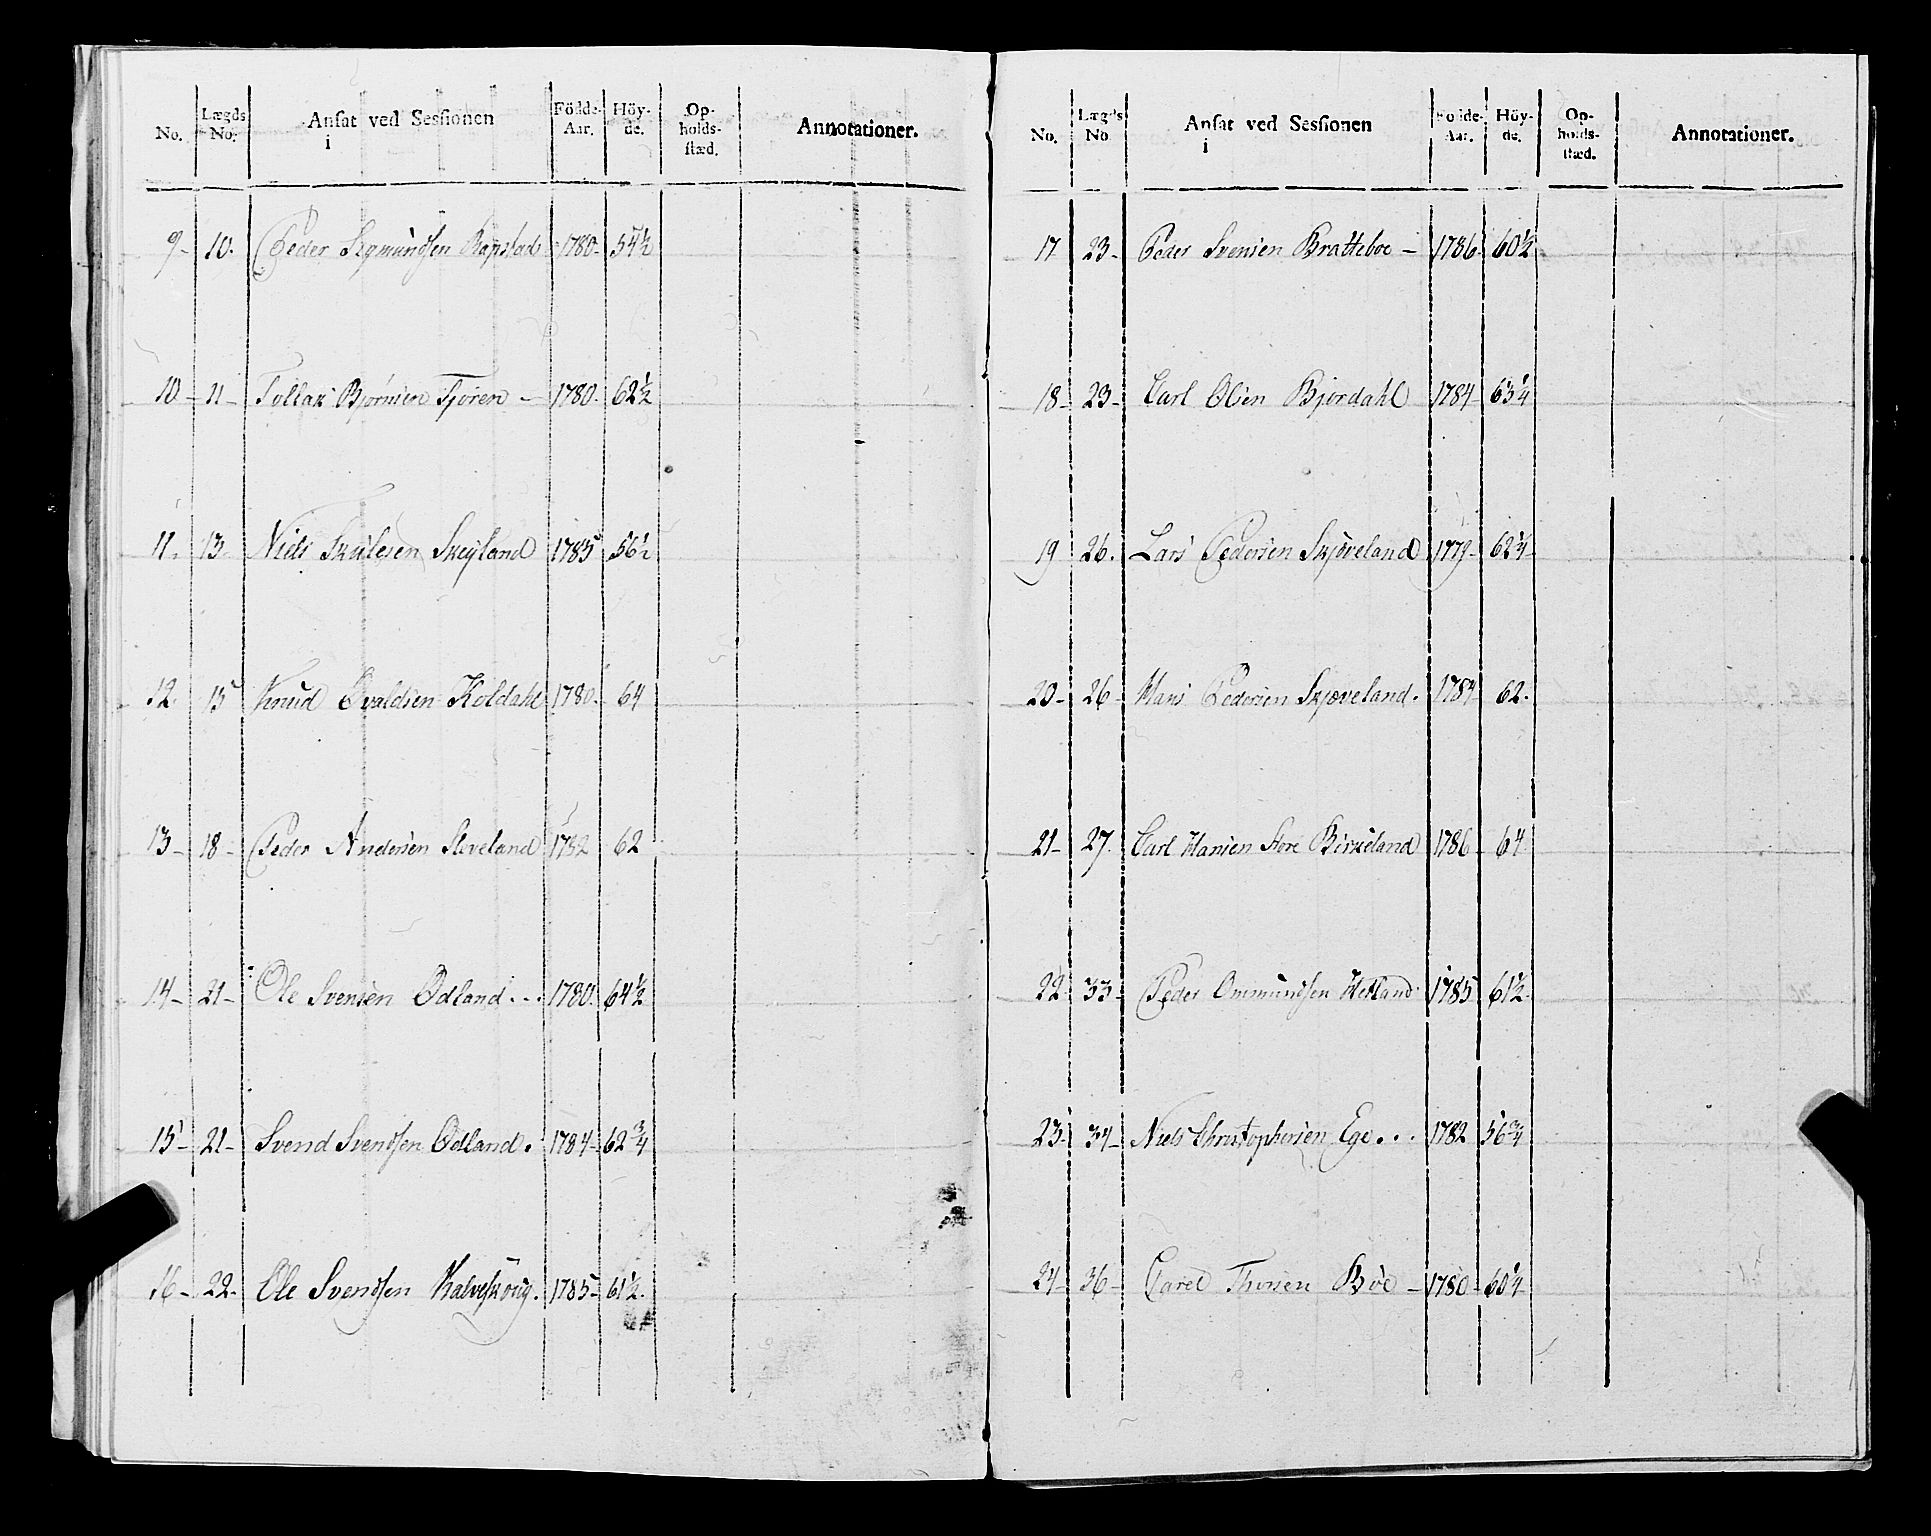 No. Lægds No. Ansat ved Sessionen i Födde-Aar. Höy-de. Op-holds-stæd. Annotationer.
9- 10. Peder Sigmundsen Rapstad 1780. 54½
10 11 Tollak Bjørnsen Tjøren 1780. 62½
11. 13. Niels Skulesen Skeyland 1785 56½
12. 15 Knud Evaldsen Koldahl 1780. 64
13 18 Peder Andersen Sleveland 1782 62
14 21 Ole Svensen Ødland 1780. 64½
15 21 Svend Svendsen Ødland. 1784 62¾
16 22. Ole Svendsen Kalveskoug. 1785 61½.
No. Lægds No Ansat ved Sessionen i Födde-Aar. Höy-de. Op-holds-stæd. Annotationer.
17 23 Peder Svensen Bratteboe 1786 60½
18 23 Carl Olsen Bjordahl 1784 63¼
19 26. Lars Pedersen Skjøveland 1779 62¼
20 26 Hans Pedersen Skjøveland. 1784 62.
21 27. Carl Hansen store Birkeland 1786 64
22 33 Peder Ommundsen Hetland 1785 61½
23 34 Niels Christophersen Ege... 1782 56¾
24 36 Carel Thorsen Bøe 1780 60¼